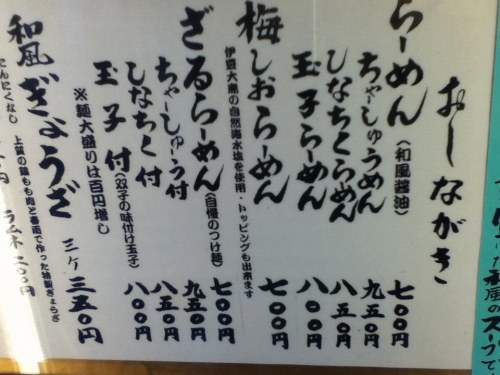 おしながき
らーめん(和風醤油) 七〇〇円
ちゃーしゅうめん 九五〇円
しなちくらーめん 八五〇円
玉子らーめん 八〇〇円
梅しおらーめん 七〇〇円
伊豆大島の自然海水塩を使用・トッピングも出来ます
ざるらーめん(自慢のつけ麺) 七〇〇円
ちゃーしゅう付 九五〇円
しなちく付 八五〇円
玉子付(双子の味付け玉子) 八〇〇円
※麺大盛りは百円増し
和風ぎょうざ 三ケ 三五〇円
にんにくなし 上質の鶏もも肉と春雨で作った特製ぎょうざ